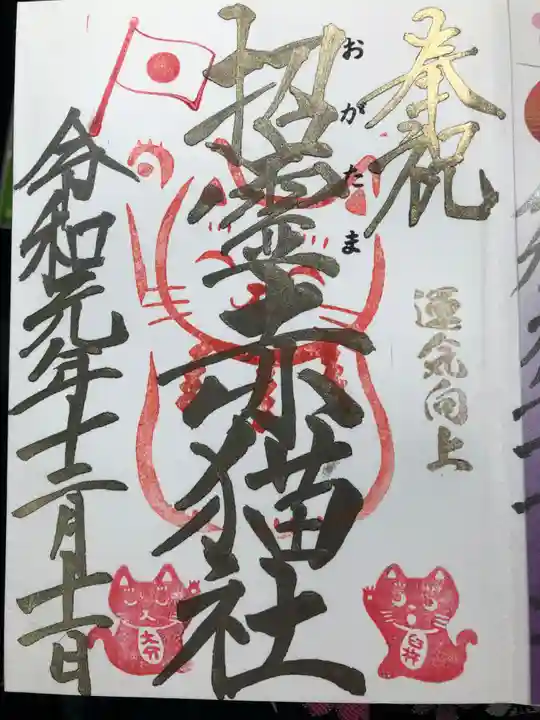 奉祝
運気向上
おがたま
招霊赤猫社
令和元年十二月十一日
大分
臼杵